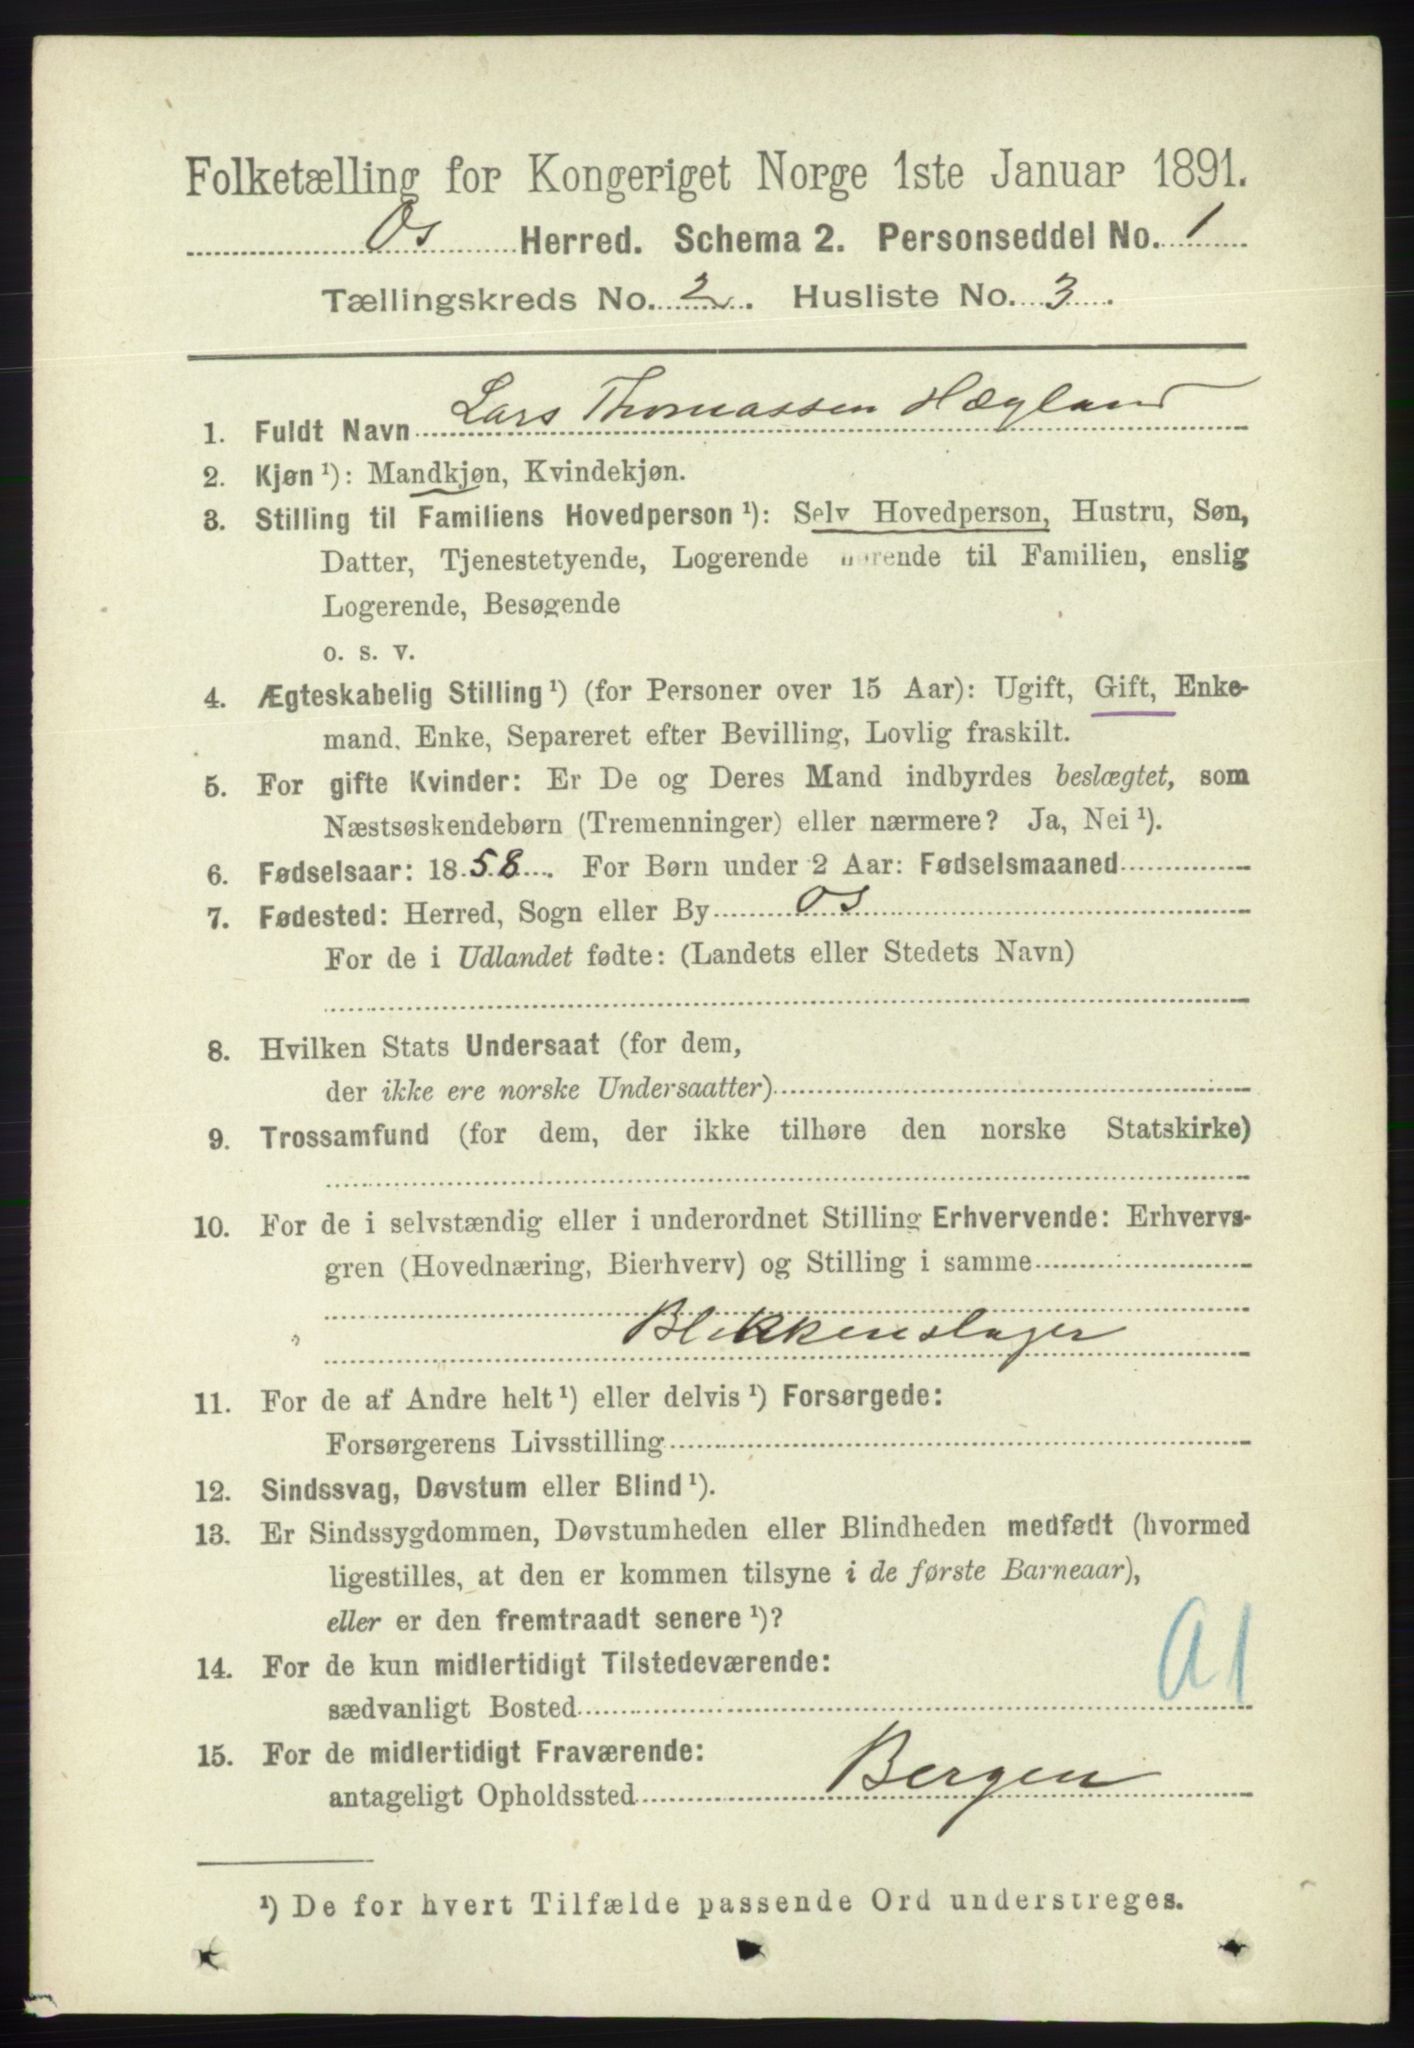 Folketælling for Kongeriget Norge 1ste Januar 1891.
Os Herred. Schema 2. Personseddel No. 1
Tællingskreds No. 2. Husliste No. 3.
1. Fuldt Navn Lars Thomassen Hægland
2. Kjøn ¹): Mandkjøn, Kvindekjøn.
3. Stilling til Familiens Hovedperson ¹): Selv Hovedperson, Hustru, Søn,
Datter, Tjenestetyende, Logerende hørende til Familien, enslig
Logerende, Besøgende
o. s. v.
4. Ægteskabelig Stilling ¹) (for Personer over 15 Aar): Ugift, Gift, Enke-
mand, Enke, Separeret efter Bevilling, Lovlig fraskilt.
5. For gifte Kvinder: Er De og Deres Mand indbyrdes beslægtet, som
Næstsøskendebørn (Tremenninger) eller nærmere? Ja, Nei ¹).
6. Fødselsaar: 1858. For Børn under 2 Aar: Fødselsmaaned
7. Fødested: Herred, Sogn eller By Os
For de i Udlandet fødte: (Landets eller Stedets Navn)
8. Hvilken Stats Undersaat (for dem,
der ikke ere norske Undersaatter)
9. Trossamfund (for dem, der ikke tilhøre den norske Statskirke)
10. For de i selvstændig eller i underordnet Stilling Erhvervende: Erhvervs-
gren (Hovednæring, Bierhverv) og Stilling i samme
Blikkenslager
11. For de af Andre helt ¹) eller delvis ¹) Forsørgede:
Forsørgerens Livsstilling
12. Sindssvag, Døvstum eller Blind ¹).
13. Er Sindssygdommen, Døvstumheden eller Blindheden medfødt (hvormed
ligestilles, at den er kommen tilsyne i de første Barneaar),
eller er den fremtraadt senere ¹)?
14. For de kun midlertidigt Tilstedeværende:
sædvanligt Bosted
A1
15. For de midlertidigt Fraværende:
antageligt Opholdssted Bergen
¹) De for hvert Tilfælde passende Ord understreges.